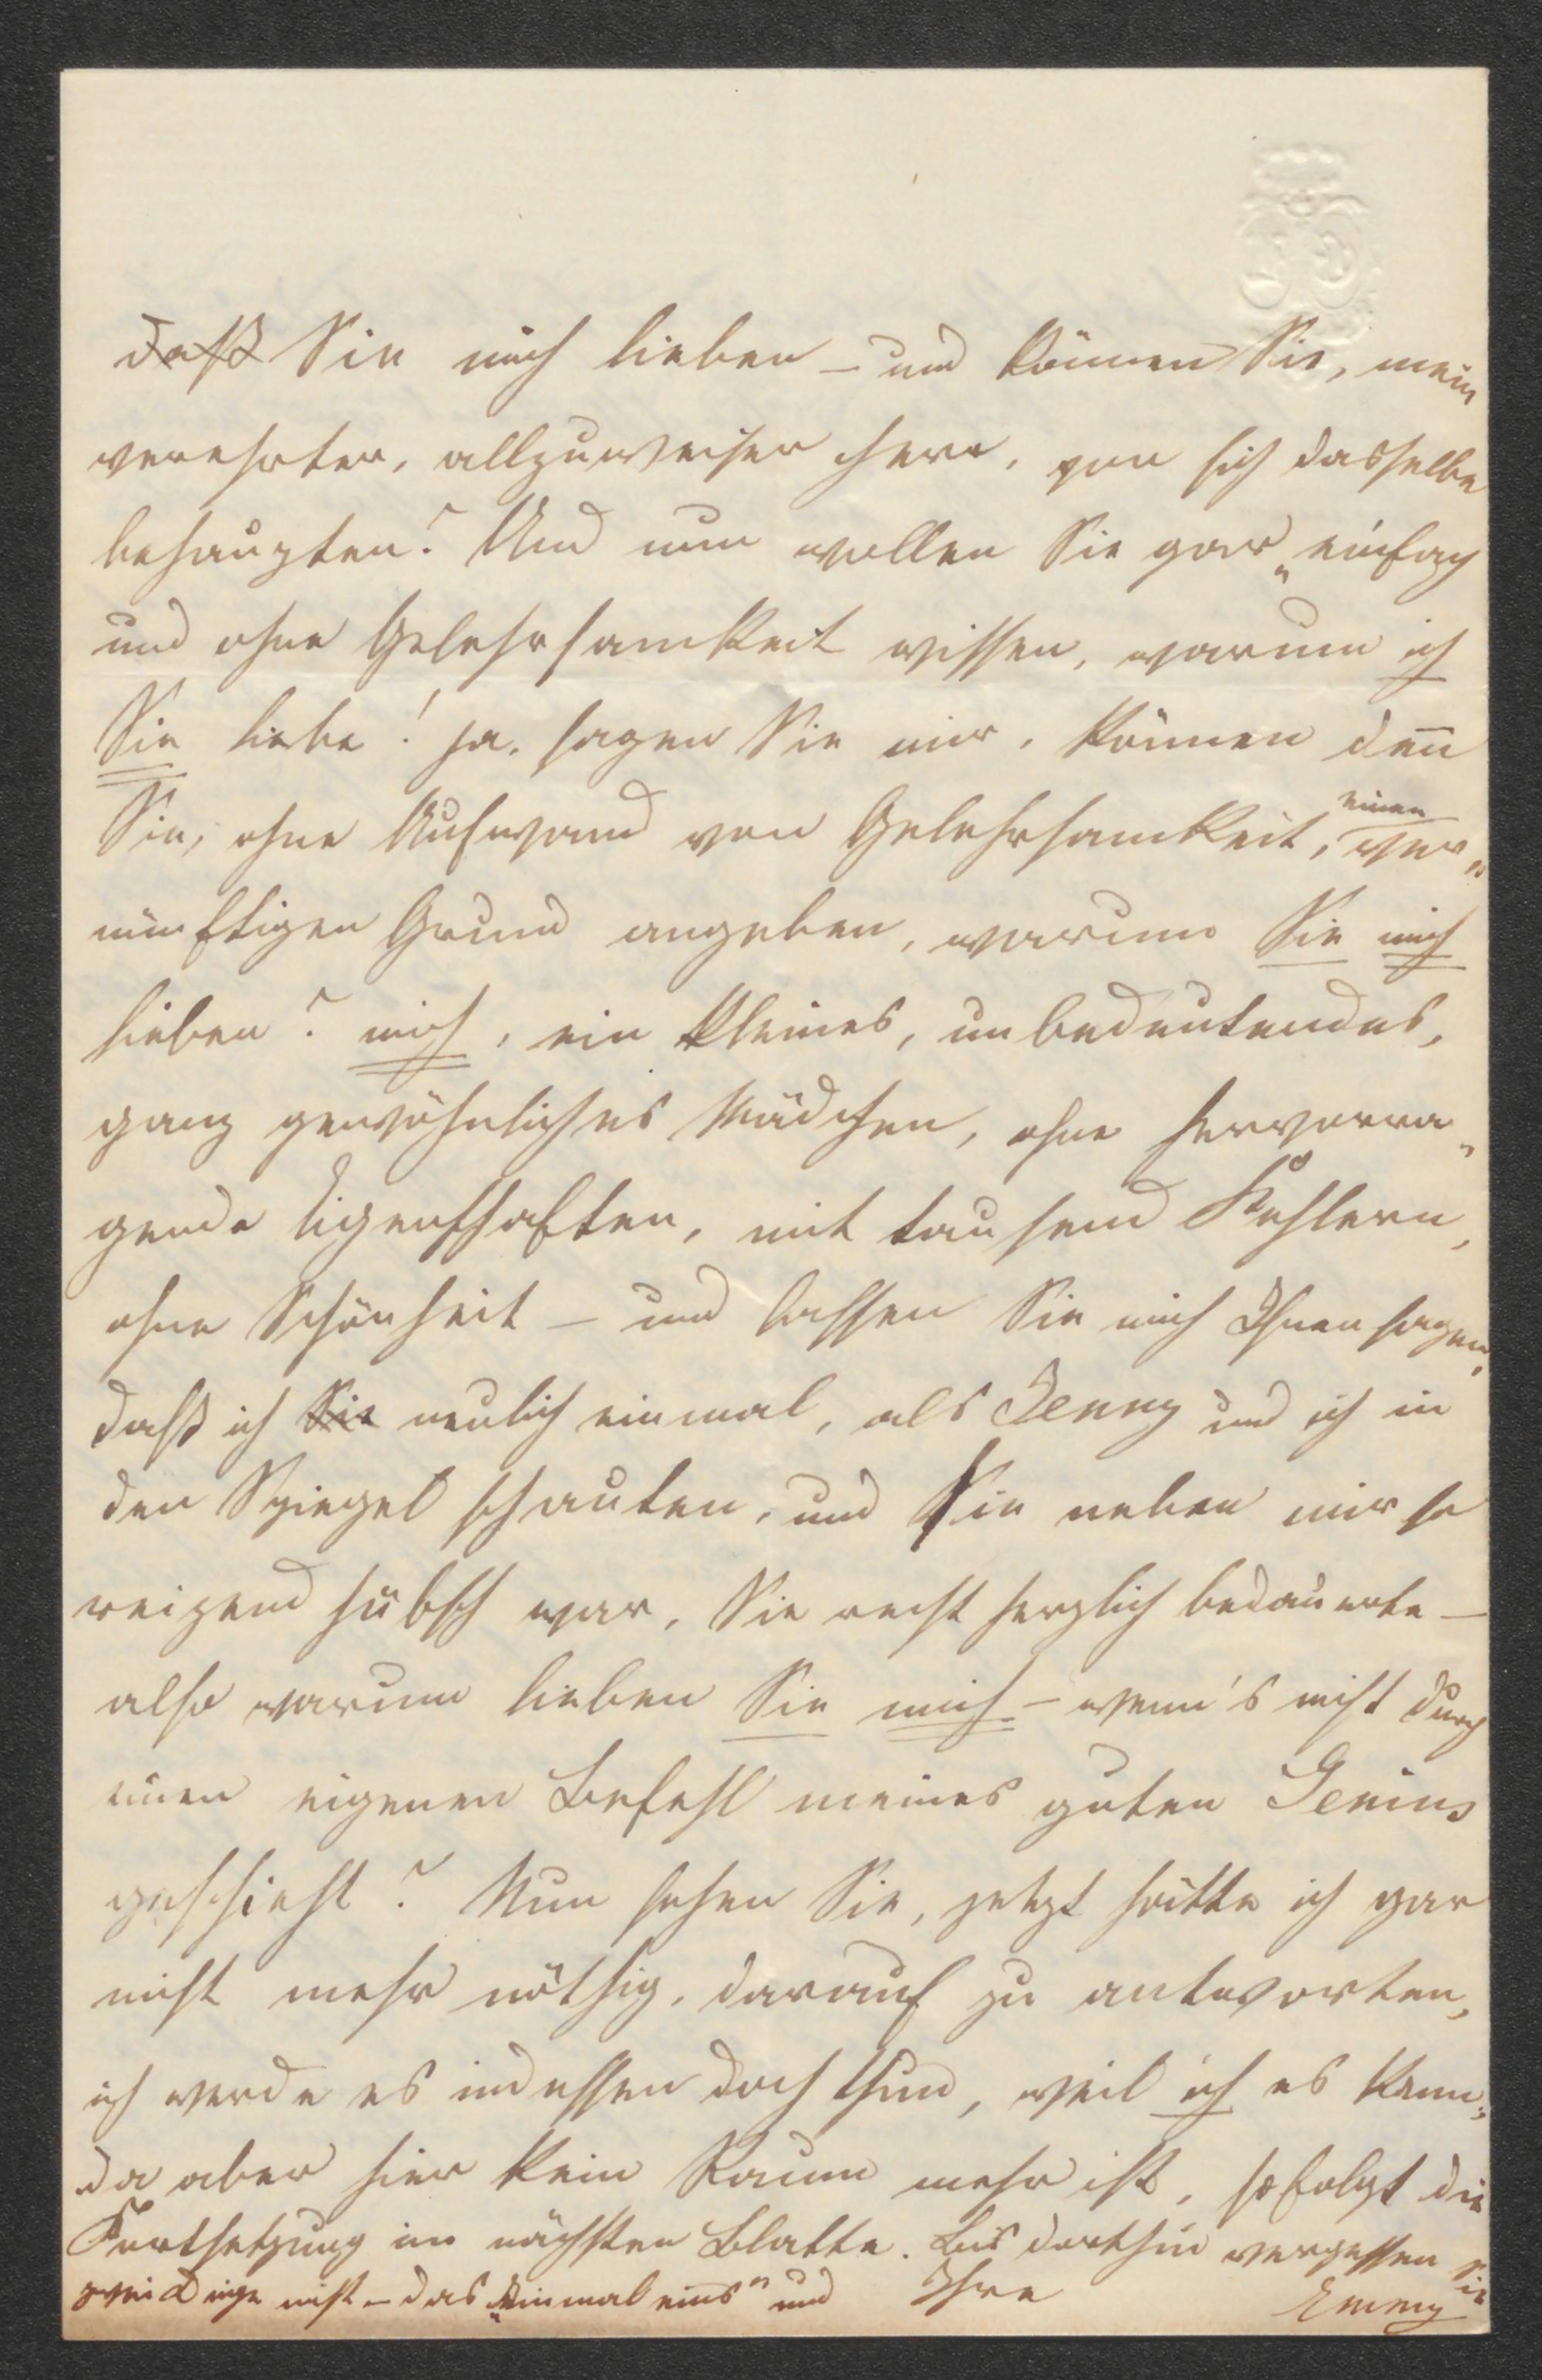 daß Sie mich lieben – und können Sie, mein
verehrter, allzuweiser Herr, von sich dasselbe
behaupten? Und nun wollen Sie gar „einfach
und ohne Gelehrsamkeit wissen, warum ich
Sie liebe! ja, sagen Sie mir, können denn
Sie, ohne Aufwand von Gelehrsamkeit, einen ver„
nünftigen Grund angeben, warum Sie mich
lieben? mich, ein kleines, unbedeutendes,
ganz gewöhnliches Mädchen, ohne hervorra„
gende Eigenschaften, mit tausend Fehlern,
ohne Schönheit – und lassen Sie mich Ihnen sagen,
daß ich Sie neulich einmal, als Jenny und ich in
den Spiegel schauten, und Sie neben mir so
reizend hübsch war, Sie recht herzlich bedauerte –
also warum lieben Sie mich – wenn's nicht durch
einen eigenen Befehl meines guten Genius
geschieht? Nun sehen Sie, jetzt hätte ich gar
nicht mehr nöthig, darauf zu antworten,
ich werde es indessen doch thun, weil ich es kann;
da aber hier kein Raum mehr ist, so folgt die
Fortsetzung im nächsten Blatte. Bis dorthin vergessen Sie
zwei Dinge nicht – das „Einmal eins" und Ihre
Emmy